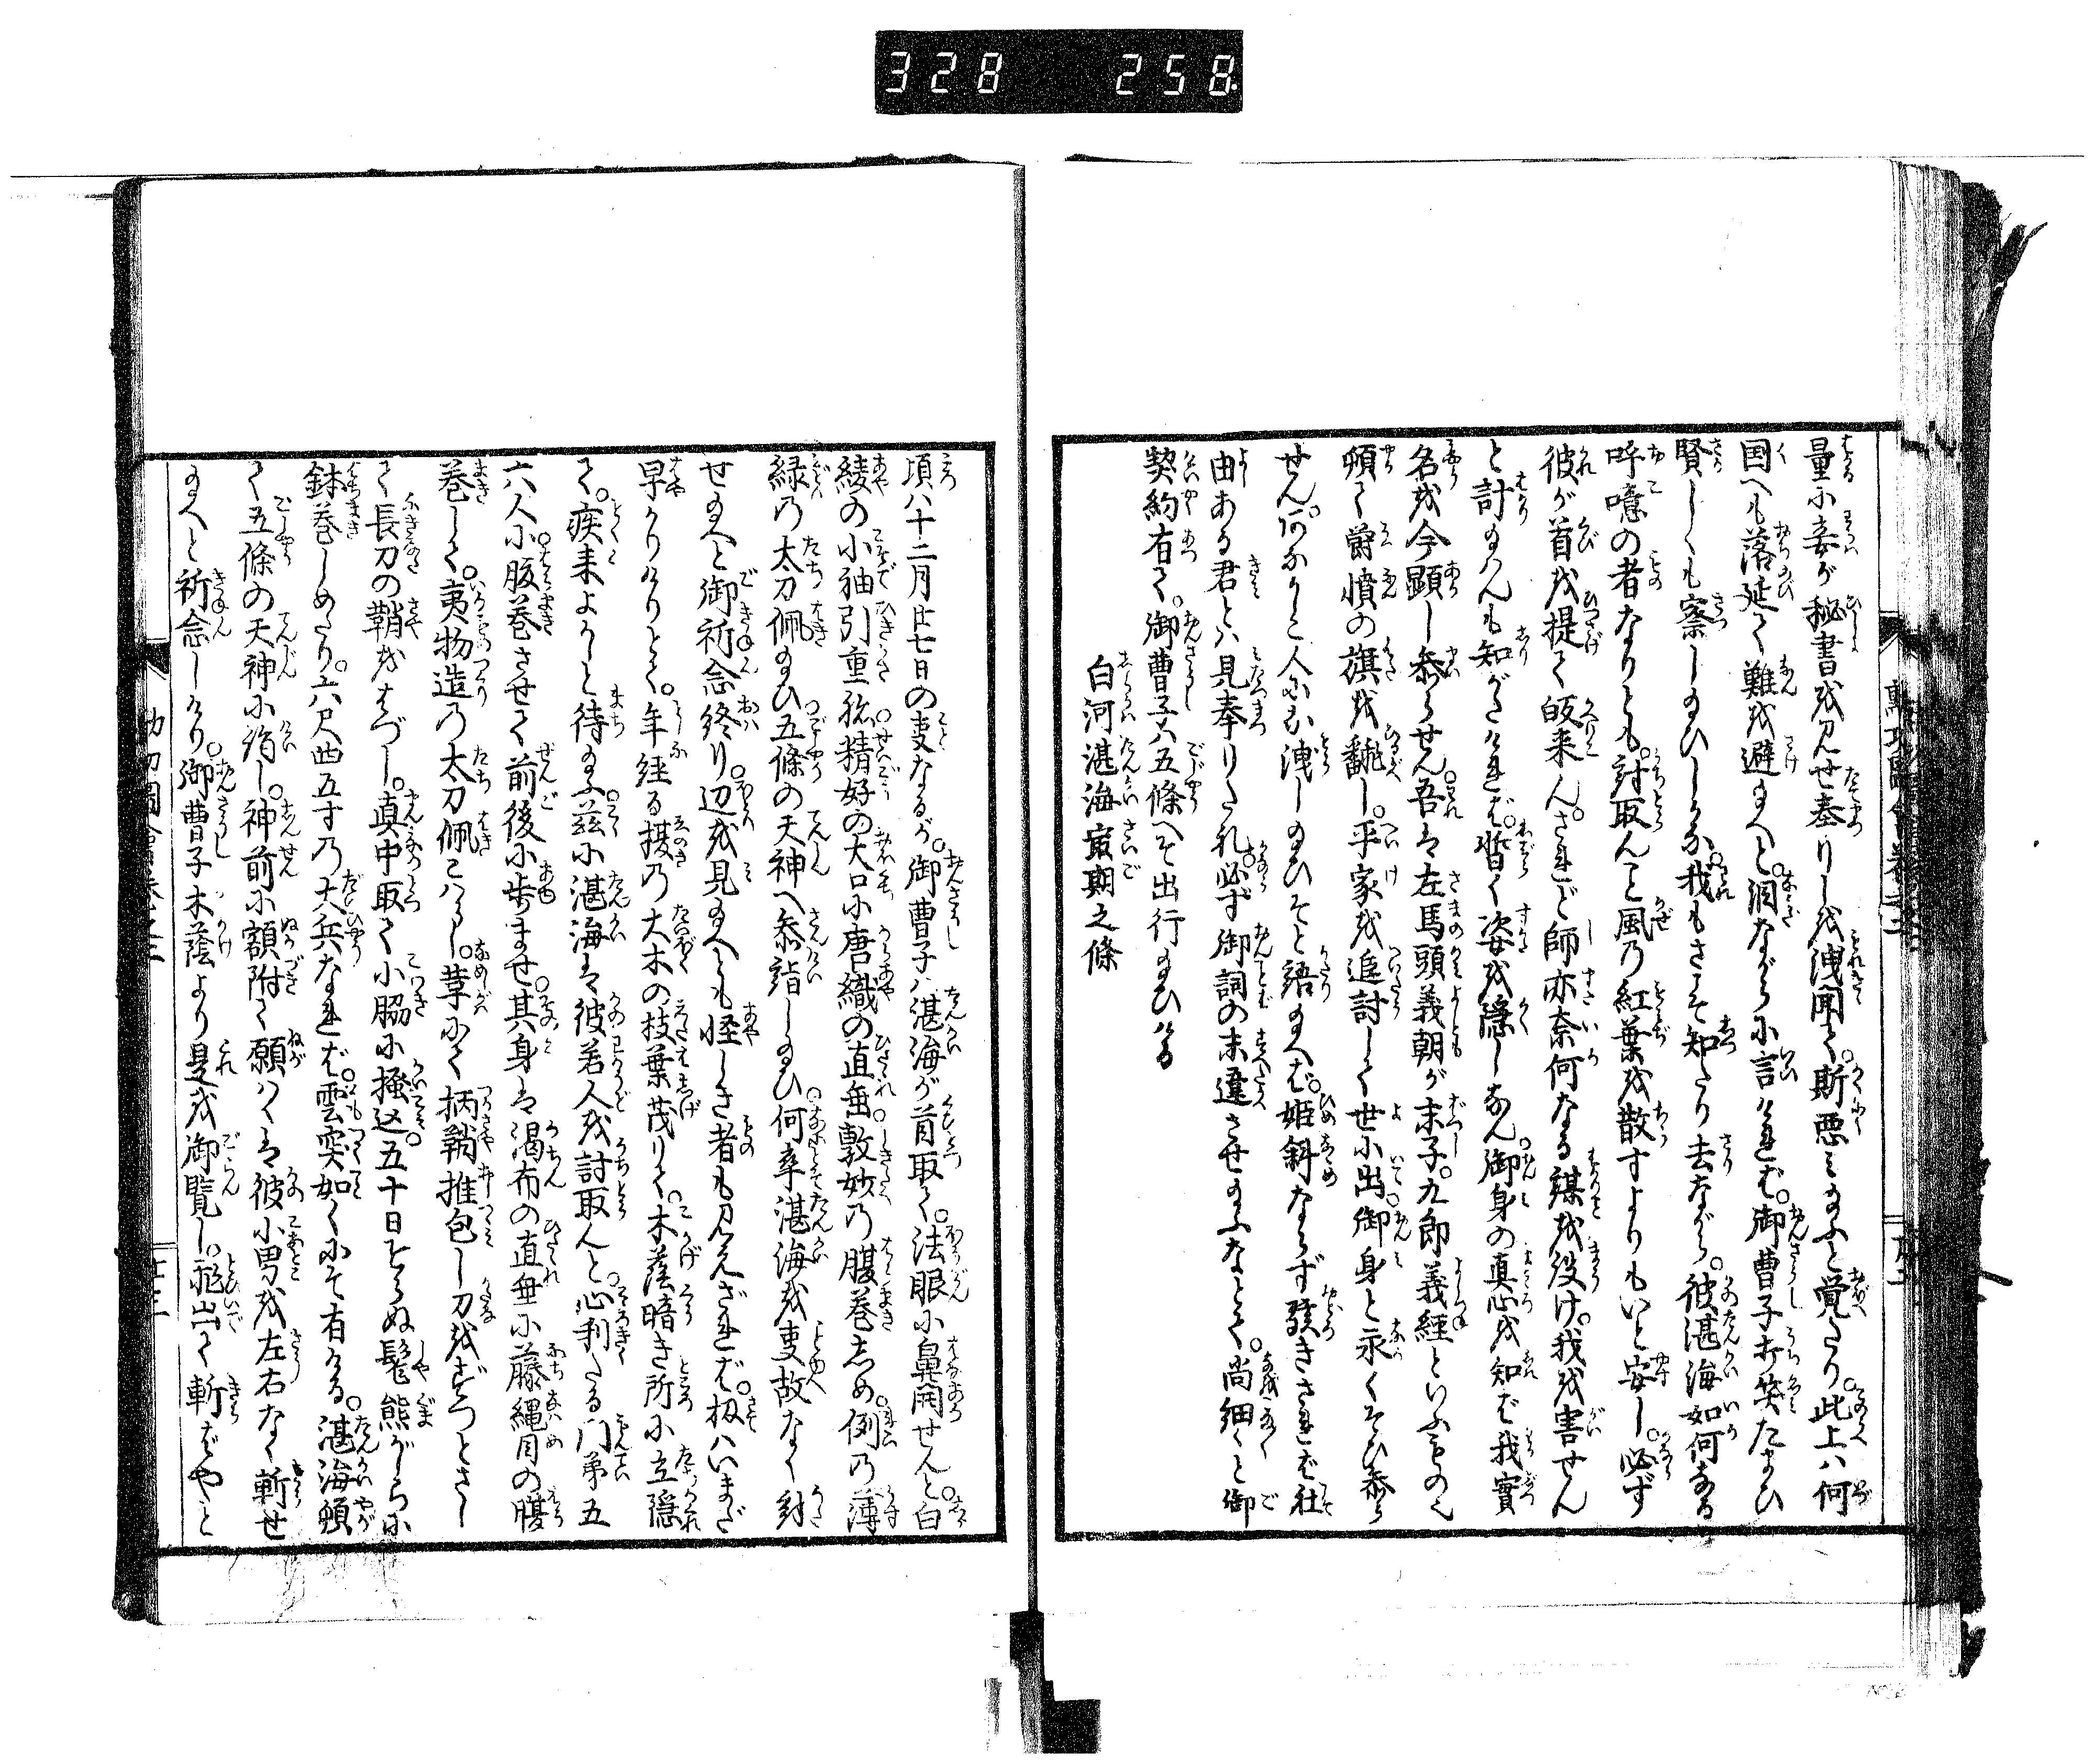 328 258
量に妾が秘書を見せ奉りしを洩聞て。斯悪ミ給ふと覚たり。此上ハ何
国へも落延て難を避給へと。泪ながらに言けれバ。御曹子打笑たまひ
賢しくも察し給ひしかな。我もさこそ知たり去ながら。彼湛海如何なる
呼噫の者なりとも。討取んこと風の紅葉を散すよりもいと安し。必ず
彼が首を提て皈来ん。されど師亦奈何なる謀を設け。我を害せん
と計給はんも知がたけれバ。暫く姿を隠しなん。御身の真心を知ば我實
名を今顕し参らせん。吾は左馬頭義朝が末子。九郎義経といふものへ
頓て欝憤の旗を飜し。平家を追討して世に出。御身と永くそひ参ら
せん。あなかしこ人にな洩し給ひそと語給へバ。姫斜ならず驚きさればこそ
由ある君とハ見奉りたれ。必ず御詞の末違させ給ふなとて。尚細〻と御
契約有て。御曹子ハ五條へぞ出行給ひける
白河湛海最期之條
項ハ十二月廿七日の叓なるが。御曹子ハ湛海が首取て。法眼に鼻明せんと。白
綾の小袖引重ね。精好の大口に唐織の直垂。敷妙の腹巻しめ。例の薄
緑の太刀佩給ひ。五條の天神へ参詣し給ひ。何卒湛海を叓故なく討
せ給へと御祈念終り。辺を見給へども怪しき者も見えざれバ。扨ハいまだ
早かりけりとて。年経る榎の大木の枝葉茂りて。木蔭暗き所に立隠
て。疾来よかしと待給ふ。茲に湛海は彼若人を討取んと。心利たる門弟五
六人に腹巻させて前後に歩ませ。其身は渇布の直垂に藤縄目の腹
巻して。夷物造の太刀佩こハらし。革にて柄鞘推包し刀をずつとさし
て長刀の鞘をはづし。真中取て小脇に掻込。五十日そらぬ髦熊がらに
鉢巻しめたり。六尺四五寸の大兵なれバ。雲突如くにぞ有ける。湛海頓
て五條の天神に詣し。神前に額附て願ハくは彼小男を左右なく斬せ
給へと祈念しけり。御曹子木蔭より是を御覧し。飛出て斬ばやと